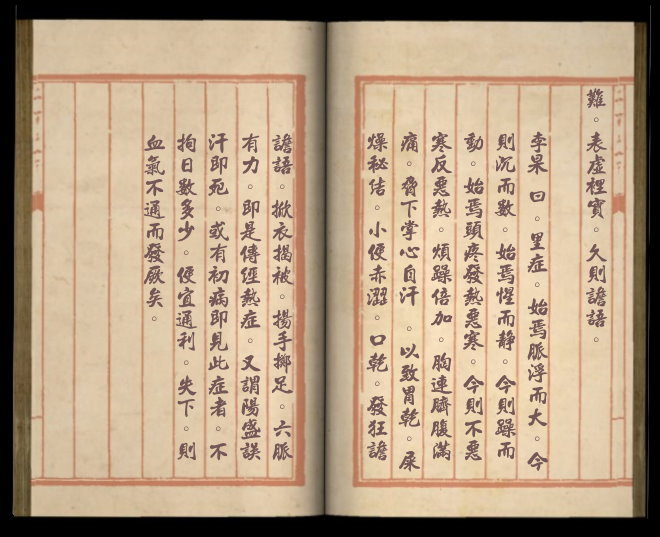 難。表虛裡實。久則譫語。
李杲曰。里症。始焉脈浮而大。今
則沉而數。始焉惺而静。今則躁而
動。始焉頭疼發熱惡寒。今則不惡
寒反惡熱。煩躁倍加。胸連臍腹滿
痛。脅下掌心自汗。以致胃乾。屎
燥秘结。小便赤澀。口乾。發狂譫
譫語。掀衣揭被。揚手擲足。六脈
有力。即是傳經熱症。又謂陽盛誤
汗即死。或有初病即見此症者。不
拘日數多少。便宜通利。失下。則
血氣不通而發厥矣。